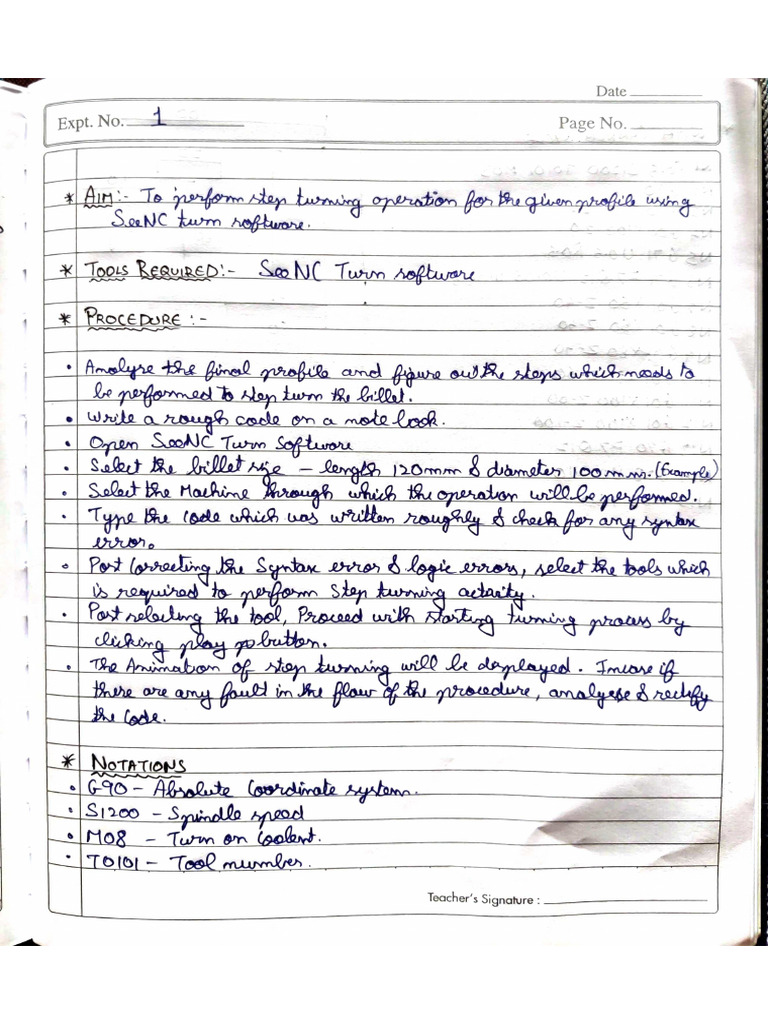 Date
Expt. No. 1
Page No.
* AIM:- To perform step turning operation for the given profile using
SeeNC turn software.
* TOOLS REQUIRED:- SeeNC Turn software
* PROCEDURE :-
• Analyse the final profile and figure out the steps which needs to
be performed to step turn the billet.
• Write a rough code on a note book.
• Open SeeNC Turn Software
• Select the billet size - length 120mm & diameter 100mm. (Example)
• Select the Machine through which the operation will be performed.
• Type the code which was written roughly & check for any syntax
error.
• Post Correcting the Syntax error & logic errors, select the tools which
is required to perform Step turning activity.
• Post selecting the tool, Proceed with starting turning process by
clicking play button.
• The Animation of step turning will be displayed. Incase if
there are any fault in the flow of the procedure, analyse & rectify
the code.
* NOTATIONS
• G90 - Absolute Coordinate system.
• S1200 - Spindle speed
• M08 - Turn on Coolent.
• T0101 - Tool number.
Teacher's Signature :